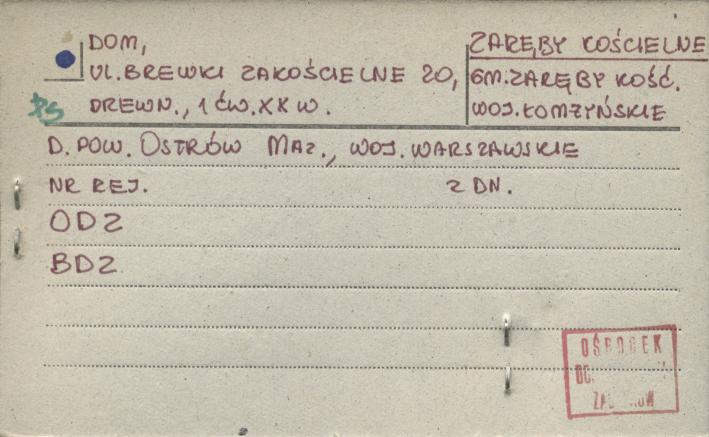 DOM,
UL. BREWKI ZAKOŚCIELNE 20,
DREWN., 1 ĆW. XX W.
ZARĘBY KOŚCIELNE
GM. ZARĘBY KOŚĆ.
WOJ. ŁOMŻYŃSKIE
PS
D. POW. OSTRÓW MAZ., WOJ. WARSZAWSKIE
NR REJ. Z DN.
ODZ
BDZ
OŚRODEK